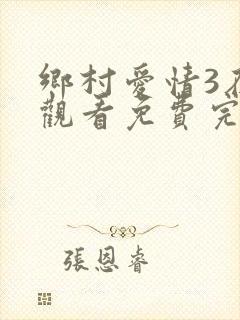 鄉村愛情3
觀看免費完
張恩睿